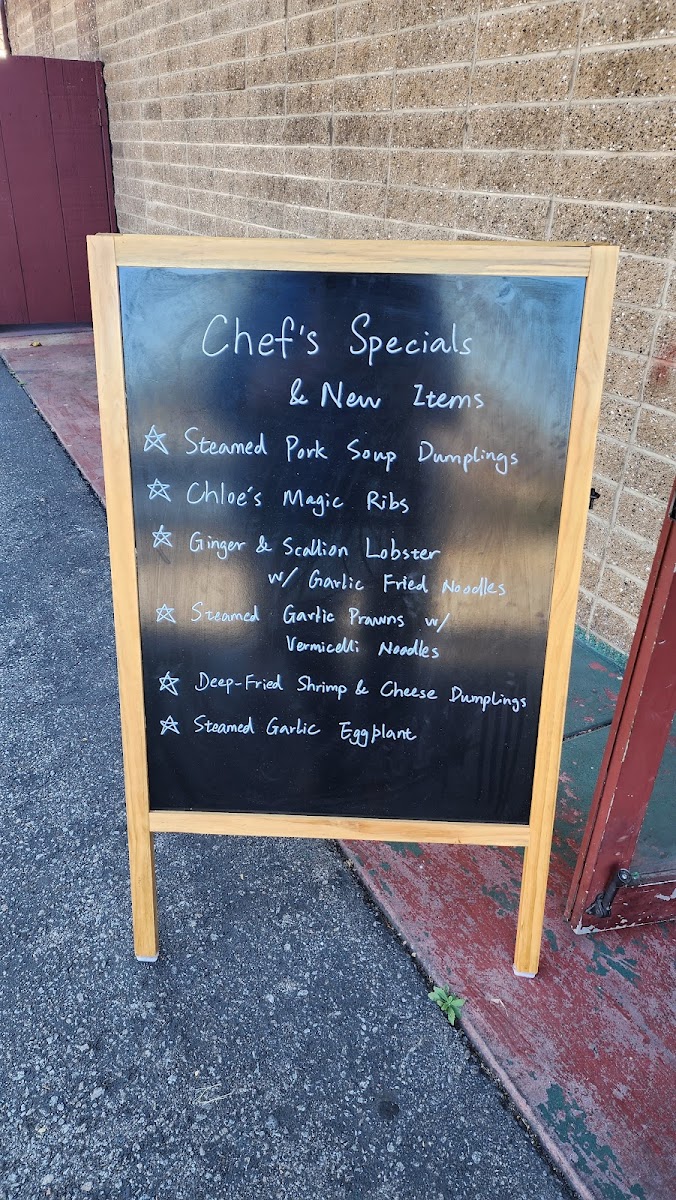 Chef's Specials
& New Items
☆ Steamed Pork Soup Dumplings
☆ Chloe's Magic Ribs
☆ Ginger & Scallion Lobster
w/ Garlic Fried Noodles
☆ Steamed Garlic Prawns w/
Vermicelli Noodles
☆ Deep-Fried Shrimp & Cheese Dumplings
☆ Steamed Garlic Eggplant